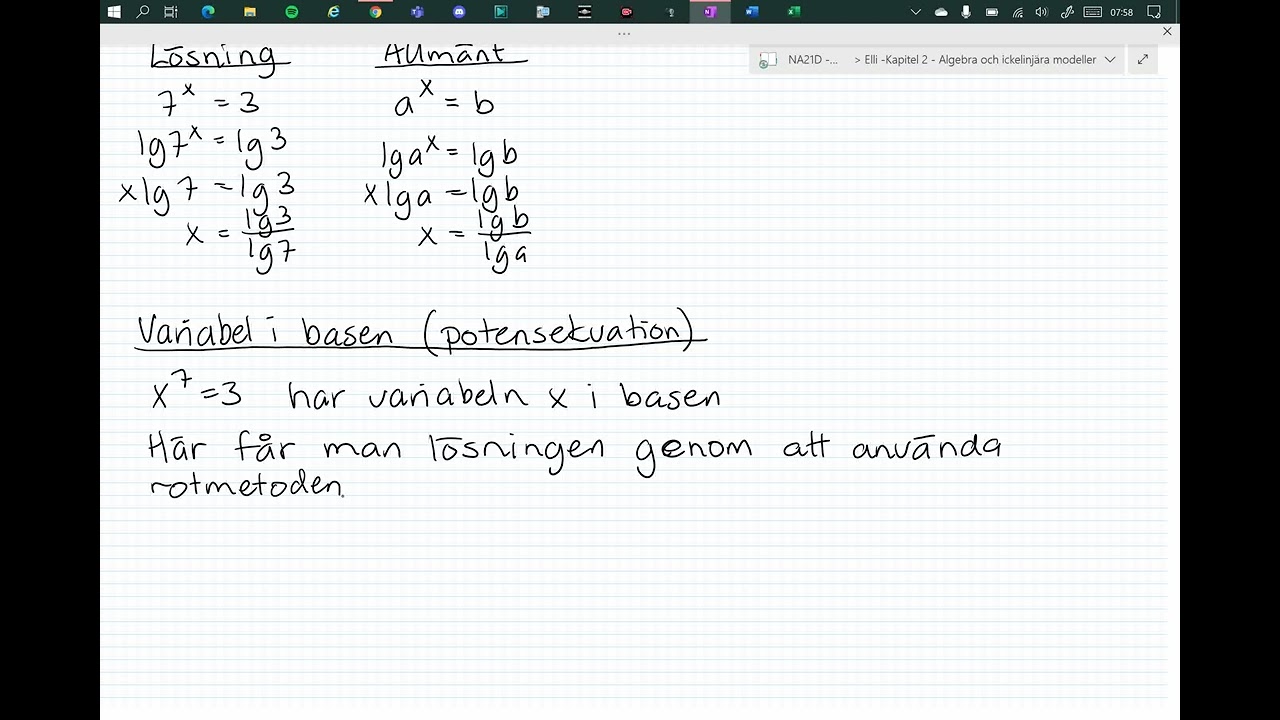 07:58
NA21D -... > Elli -Kapitel 2 - Algebra och ickelinjära modeller
Lösning
7^x = 3
lg7^x = lg3
xlg7 = lg3
x = lg3/lg7
Allmänt
a^x = b
lga^x = lgb
xlga = lgb
x = lgb/lga
Variabel i basen (potensekvation)
x^7 = 3 har variabeln x i basen
Här får man lösningen genom att använda
rotmetoden.